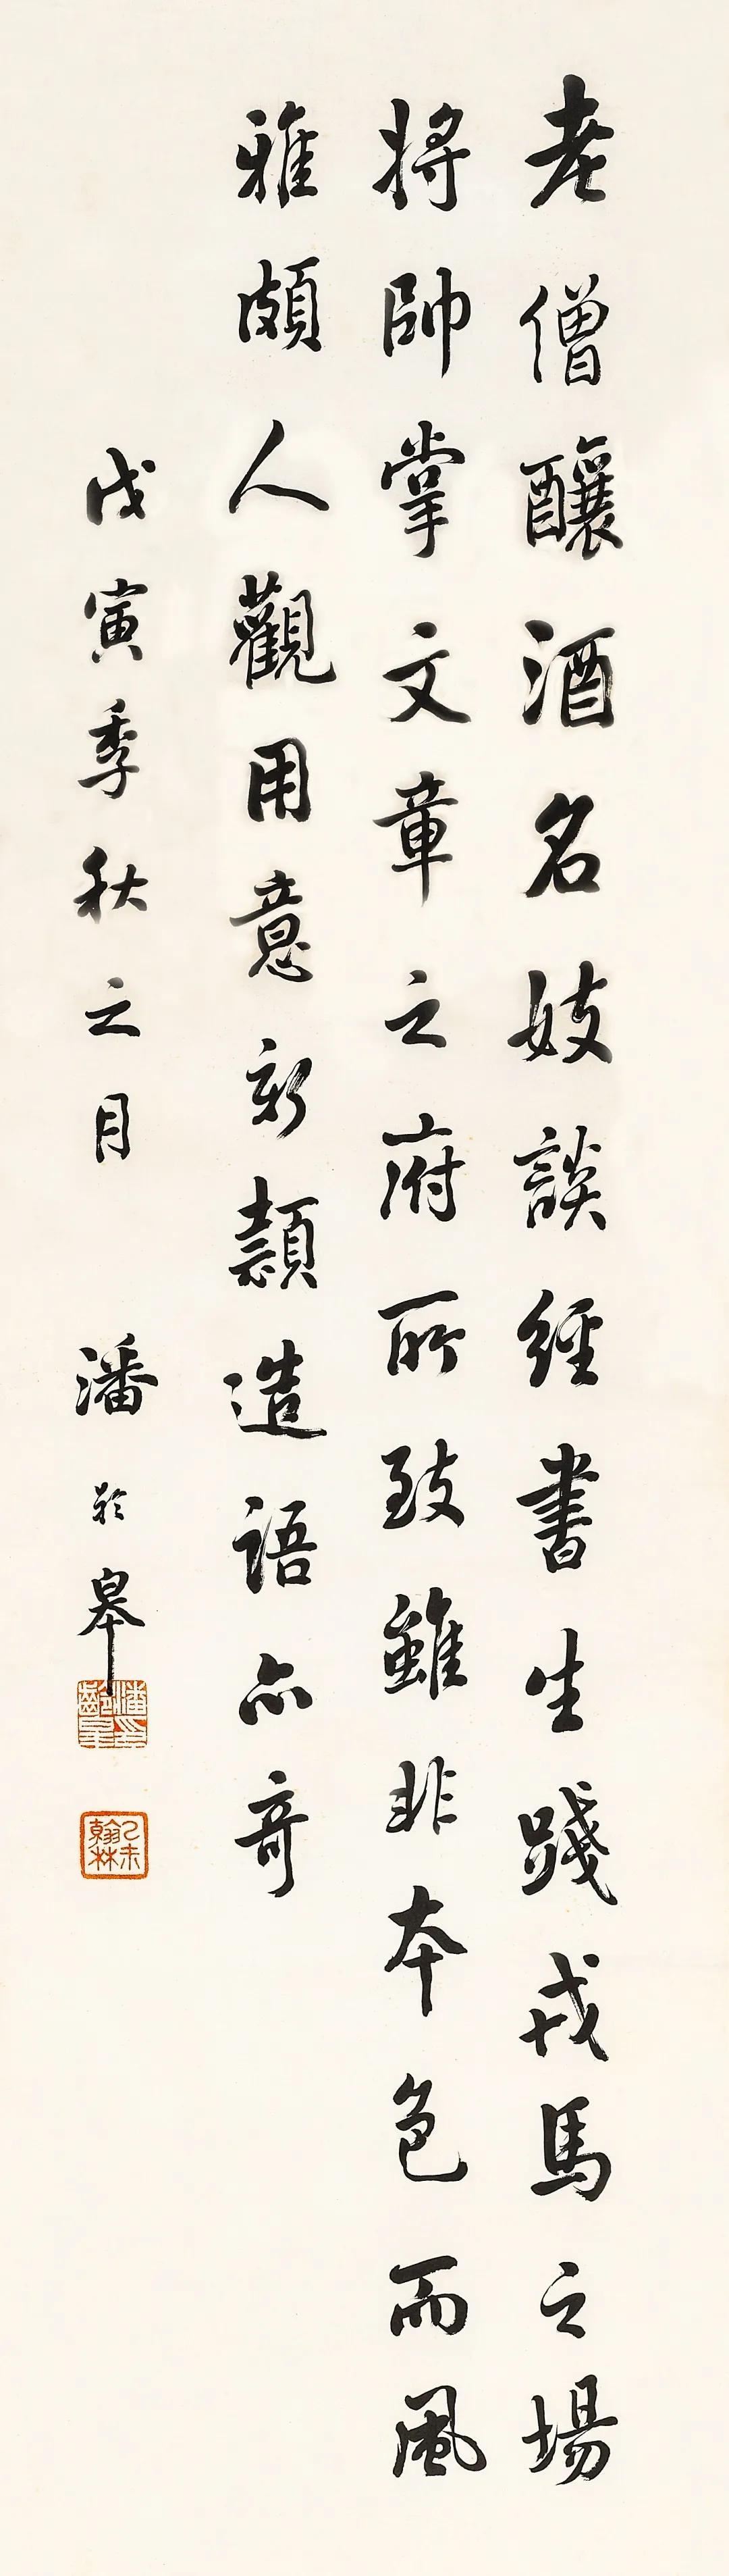 老僧釀酒名妓談經書生踐戎馬之場
將帥掌文章之府所致雖非本色而風
雅頗人觀用意新穎造語亦奇
戊寅季秋之月 潘齡皋
潘印齡皋
乙未翰林